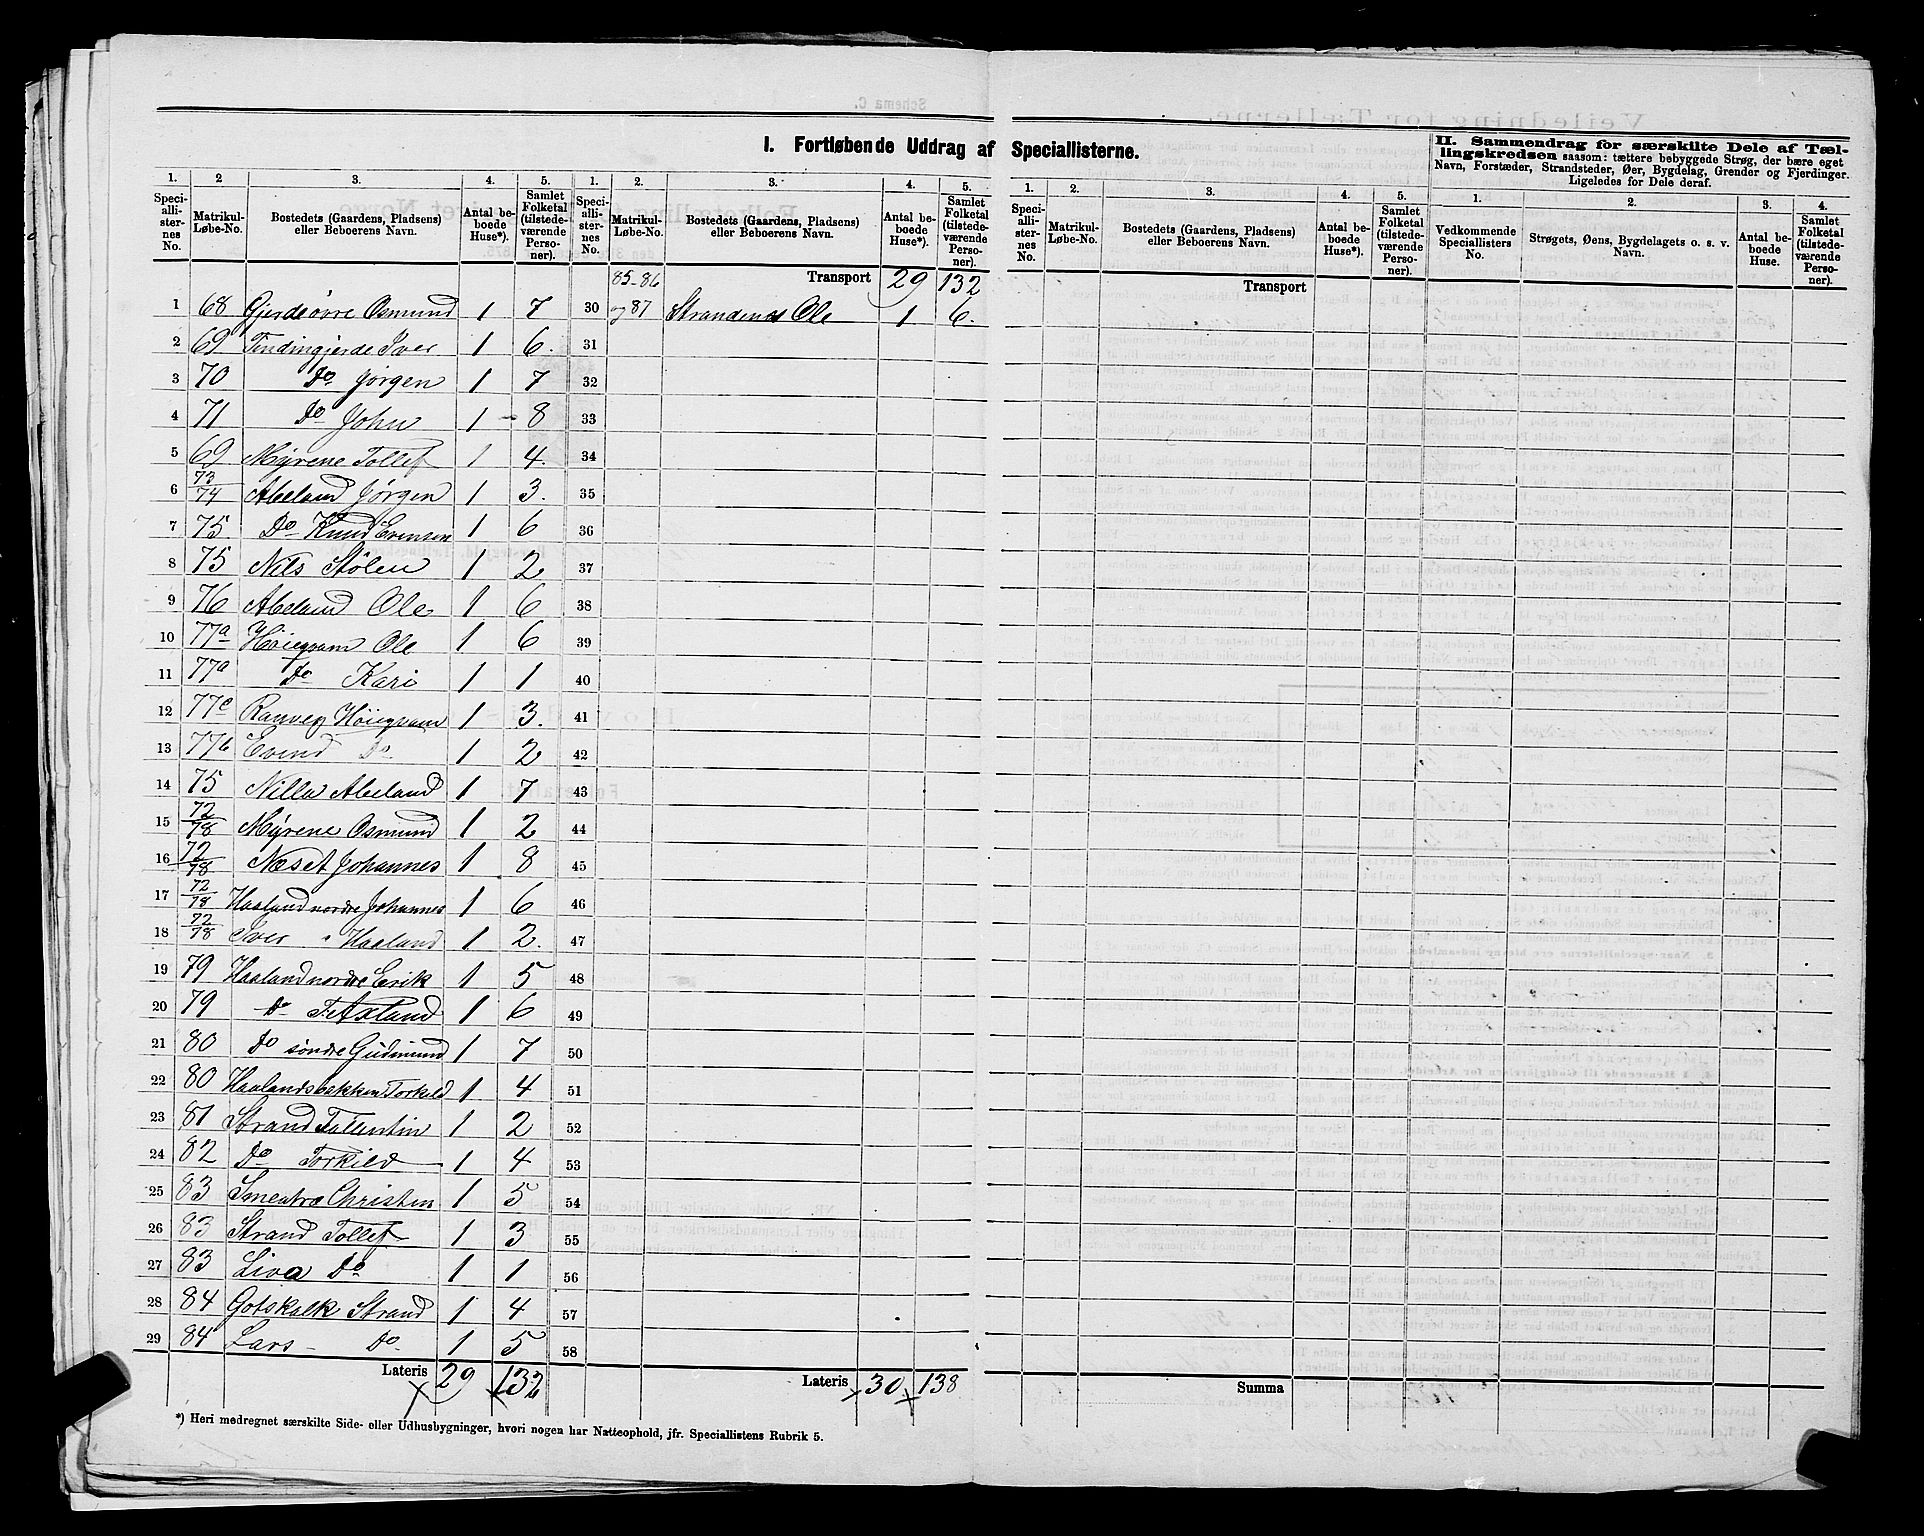 I. Fortløbende Uddrag af Speciallisterne.
II. Sammendrag for særskilte Dele af Tæl-
lingskredsen saasom: tættere bebyggede Strøg, der bære eget
Navn, Forstæder, Strandsteder, Øer, Bygdelag, Grender og Fjerdinger.
Ligeledes for Dele deraf.
1. 2 3. 4. 5. 1. 2. 3. 4. 5. 1. 2. 3. 4. 5. 1. 2. 3. 4.
Speciallisternes No. Matrikul-Løbe-No. Bostedets (Gaardens, Pladsens) eller Beboerens Navn. Antal beboede Huse*). Samlet Folketal (tilstedeværende Personer).
Speciallisternes No. Matrikul-Løbe-No. Bostedets (Gaardens, Pladsens) eller Beboerens Navn. Antal beboede Huse*). Samlet Folketal (tilstedeværende Personer).
Speciallisternes No. Matrikul-Løbe-No. Bostedets (Gaardens, Pladsens) eller Beboerens Navn. Antal beboede Huse*). Samlet Folketal (tilstedeværende Personer).
Vedkommende Speciallisters No. Strøgets, Øens, Bygdelagets o. s. v. Navn. Antal beboede Huse. Samlet Folketal (tilstedeværende Personer).
85-86 Transport 29 132 Transport
1 68 Gjerdeövre Osmund 1 7 30 og 87 Strandenas Ole 1 6.
2 69 Tindingjerde Iver 1 6. 31
3 70 Do Jörgen 1 7 32
4 71 Do John 1 8 33
5 69 Myrene Tollef 1 4. 34
6 73/74 Abeland Jörgen 1 3. 35
7 75. Do Knud Evensen 1 6 36
8 75 Nils Stölen 1 2 37
9 76 Abeland Ole 1 6 38
10 77a Höiegvam Ole 1 6 39
11 77a Do Kari 1 1 40
12 77c Ranveg Höiegvam 1 3. 41
13 77b Evind Do 1 2 42
14 75 Nilla Abeland 1 7 43
15 72/78 Myrene Osmund 1 2 44
16 72/78 Næset Johannes 1 8 45
17 72/78 Haaland nordre Johannes 1 6 46
18 72/78 Iver " Haaland 1 2. 47
19 79 Haaland nordre Erik 1 5 48
20 79 Do T. Axland 1 6 49
21 80 Do söndre Gudmund 1 7 50
22 80 Haalandsbakken Torkild 1 4 51
23 81 Strand Talentin 1 2 52
24 82 Do Torkild 1 4 53
25 83 Smeatræ Christen 1 5 54
26 83 Strand Tollef 1 3 55
27 83 Liva Do 1 1 56
28 84 Gotskalk Strand 1 4 57
29 84 Lars - Do. 1 5 58
Lateris 29 132 Lateris 30 138 Summa
*) Heri medregnet særskilte Side- eller Udhusbygninger, hvori nogen har Natteophold, jfr. Speciallistens Rubrik 5.